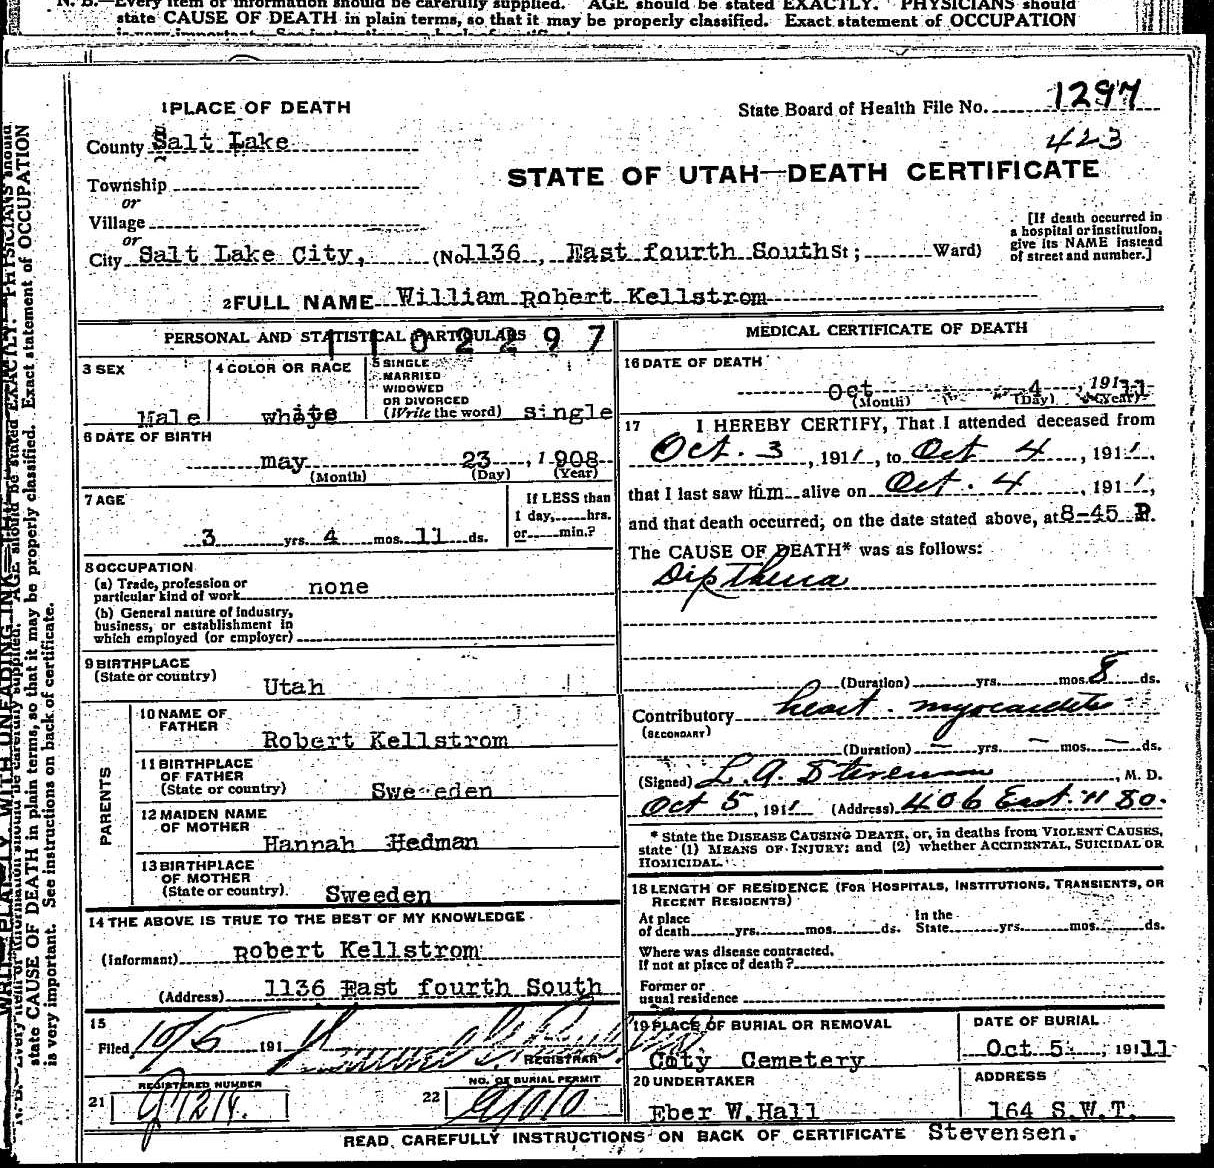 N. B.—Every item of information should be carefully supplied. AGE should be stated EXACTLY. PHYSICIANS should
state CAUSE OF DEATH in plain terms, so that it may be properly classified. Exact statement of OCCUPATION
1 PLACE OF DEATH
State Board of Health File No. 1297
423
County Salt Lake
STATE OF UTAH—DEATH CERTIFICATE
Township
or
Village
or
City Salt Lake City, (No 1136, East fourth South St; Ward)
[If death occurred in
a hospital or institution,
give its NAME instead
of street and number.]
2 FULL NAME William Robert Kellstrom
PERSONAL AND STATISTICAL PARTICULARS
1102297
3 SEX
Male
4 COLOR OR RACE
white
5 SINGLE
MARRIED
WIDOWED
OR DIVORCED
(Write the word) single
6 DATE OF BIRTH
may 23, 1908
(Month) (Day) (Year)
7 AGE
3 yrs. 4 mos. 11 ds.
If LESS than
1 day, hrs.
or min.?
8 OCCUPATION
(a) Trade, profession or
particular kind of work none
(b) General nature of industry,
business, or establishment in
which employed (or employer)
9 BIRTHPLACE
(State or country)
Utah
PARENTS
10 NAME OF
FATHER
Robert Kellstrom
11 BIRTHPLACE
OF FATHER
(State or country) Sweeden
12 MAIDEN NAME
OF MOTHER
Hannah Hedman
13 BIRTHPLACE
OF MOTHER
(State or country). Sweeden
14 THE ABOVE IS TRUE TO THE BEST OF MY KNOWLEDGE
(Informant) Robert Kellstrom
(Address) 1136 East fourth South
15
Filed 10/5 191
REGISTRAR
REGISTERED NUMBER
21
NO. OF BURIAL PERMIT
22
MEDICAL CERTIFICATE OF DEATH
16 DATE OF DEATH
Oct 4, 191 11
(Month) (Day) (Year)
17 I HEREBY CERTIFY, That I attended deceased from
Oct. 3, 1911, to Oct 4, 1911,
that I last saw him alive on Oct. 4, 1911,
and that death occurred, on the date stated above, at 8-45 P.
The CAUSE OF DEATH* was as follows:
Diptheria
(Duration) yrs. mos. 8 ds.
Contributory heart - myocarditis
(SECONDARY)
(Duration) — yrs. — mos. — ds.
(Signed) L. A. Stevenson, M. D.
Oct 5, 1911 (Address) 406 East 11 80.
* State the DISEASE CAUSING DEATH, or, in deaths from VIOLENT CAUSES,
state (1) MEANS OF INJURY; and (2) whether ACCIDENTAL, SUICIDAL OR
HOMICIDAL.
18 LENGTH OF RESIDENCE (FOR HOSPITALS, INSTITUTIONS, TRANSIENTS, OR
RECENT RESIDENTS)
At place
of death yrs. mos. ds.
In the
State yrs. mos. ds.
Where was disease contracted,
If not at place of death?
Former or
usual residence
19 PLACE OF BURIAL OR REMOVAL
City Cemetery
DATE OF BURIAL
Oct 5, 191 11
20 UNDERTAKER
Eber W. Hall
ADDRESS
164 S.W.T.
READ CAREFULLY INSTRUCTIONS ON BACK OF CERTIFICATE Stevensen.
state CAUSE OF DEATH in plain terms, so that it may be properly classified. Exact statement of OCCUPATION
is very important. See instructions on back of certificate.